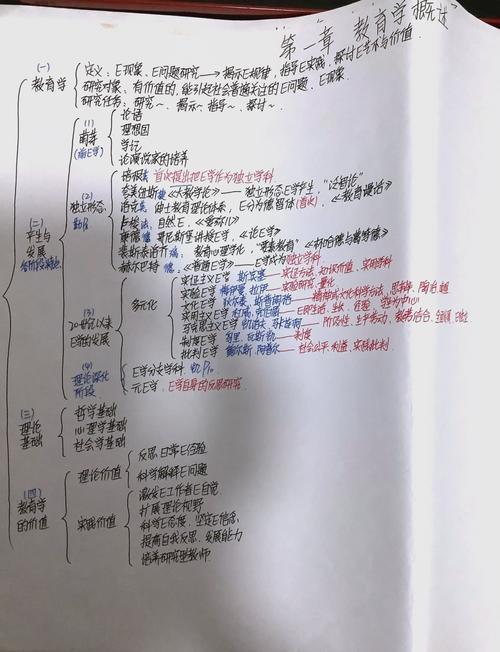 第一章 教育学概述
(一)
教育学
定义：E现象、E问题研究→揭示E规律，指导E实践，探讨E艺术与价值．
研究对象：有价值的，能引起社会普遍关注的E问题、E现象
研究任务：研究～、揭示～、指导～、探讨～
(二)
产生与
发展
(1)
萌芽
(前E学)
论语
理想国
学记
论演说家的培养
(2)
独立形态
培根 首次提出把E学作为独立学科
夸美纽斯《大教学论》— 独立形态E学产生，“泛智论”
洛克 绅士教育理论体系，E分为德智体(首次)，《教育漫话》
卢梭 法，自然E，《爱弥儿》
康德 德 哥尼斯堡讲授E学，《论E学》
裴斯泰洛齐 瑞：教育心理学化，“要素教育”《林哈德与葛笃德》
赫尔巴特 德，《普通E学》— E学成为独立学科
(3)
20世纪以来
E学的发展
多元化
实证主义E学 斯宾塞 — 实证方法，知识价值、实用学科
实验E学 梅伊曼 — 实验研究，量化
文化E学 狄尔泰、斯普朗格
实用主义E学
马克思主义E学
制度E学 — 制度
批判E学 — 社会公平、利益、实践批判
(4)
理论深化
阶段
E学分支学科
元E学，E学自身的反思研究
(三)
理论
基础
哲学基础
心理学基础
社会学基础
(四)
教育学
的价值
理论价值
反思日常E经验
科学解释E问题
实践价值
激发E工作者E自觉
扩展理论视野
科学E态度，坚定E信念
提高自我反思、发展能力
培养研究型教师